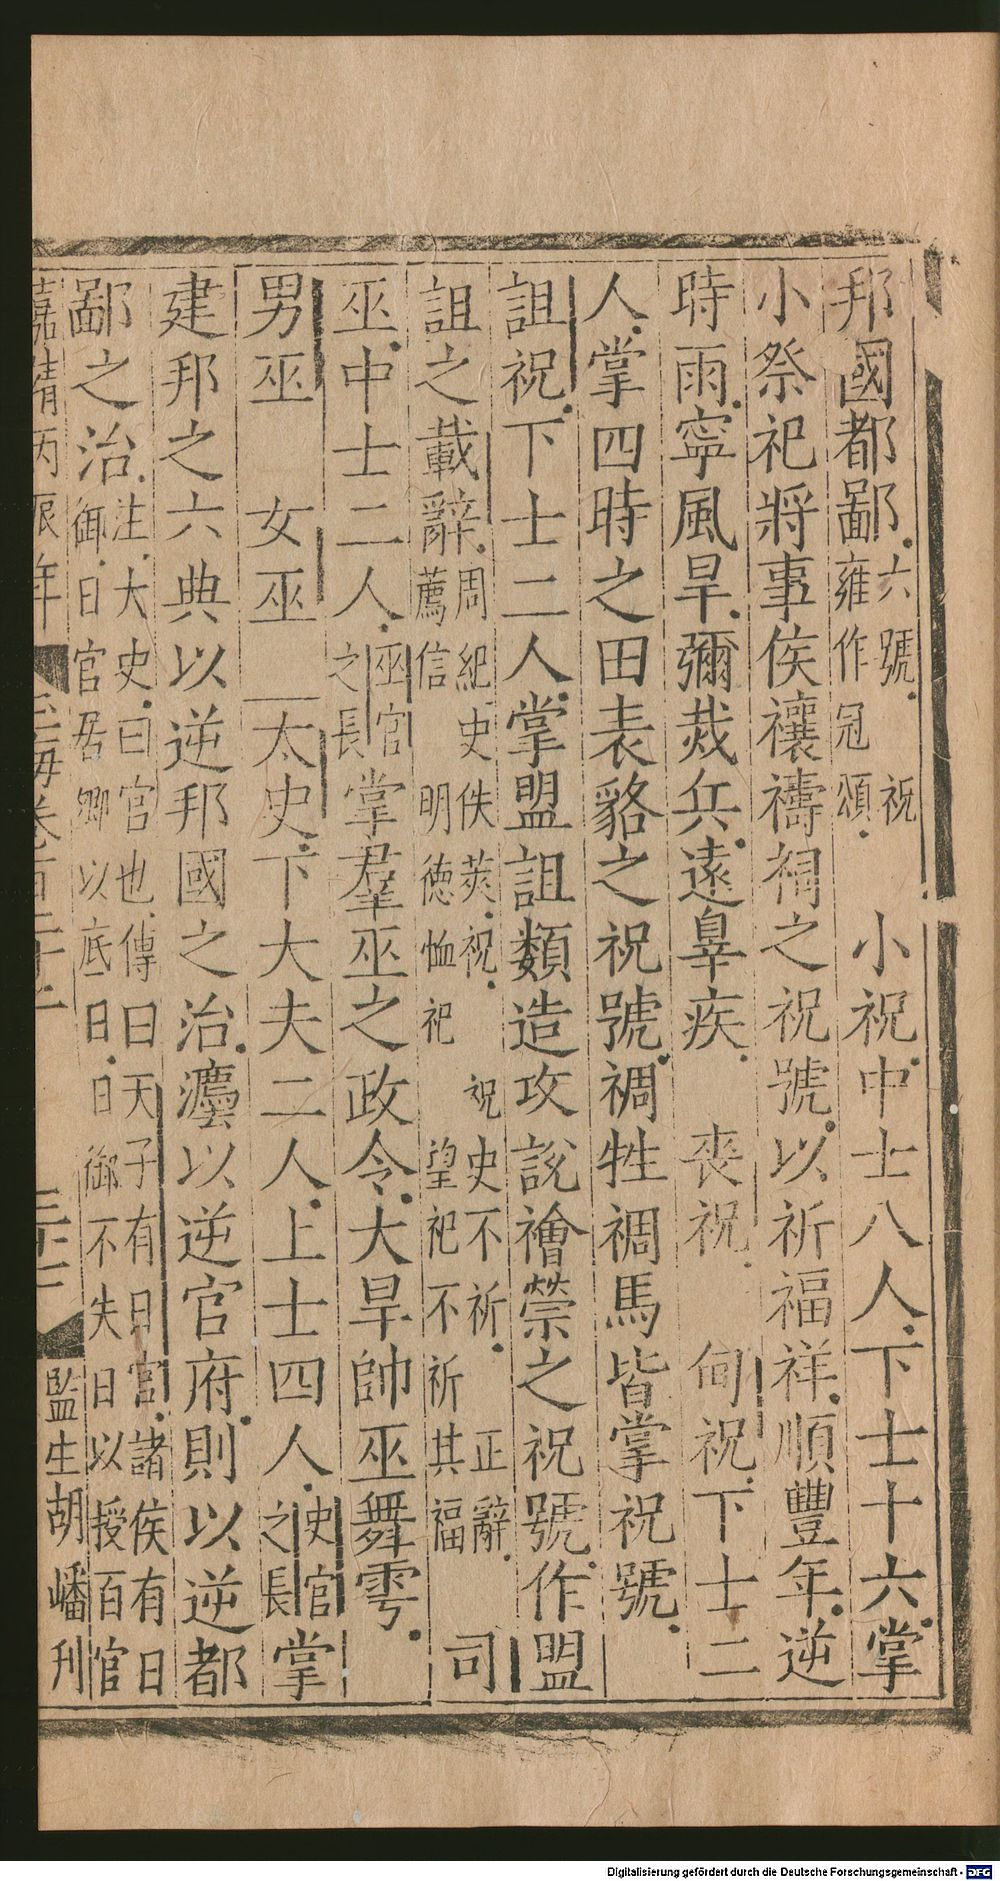 邦國都鄙六號祝雍作冠頌小祝中士八人下士十六掌
小祭祀將事侯禳禱祠之祝號以祈福祥順豐年逆
時雨寧風旱彌烖兵遠辠疾喪祝甸祝下士二
人掌四時之田表貉之祝號禂牲禂馬皆掌祝號
詛祝下士二人掌盟詛類造攻說禬禜之祝號作盟
詛之載辭周紀史佚筴祝祝史不祈正辭薦信明徳恤祀望祀不祈其福司
巫中士二人巫官之長掌羣巫之政令大旱帥巫舞雩
男巫女巫太史下大夫二人上士四人史官之長掌
建邦之六典以逆邦國之治灋以逆官府則以逆都
鄙之治注大史曰官也傳曰天子有日官諸侯有日御日官居卿以底日日御不失日以授百官
嘉靖丙辰年玉海卷百二十二監生胡嶓刋
Digitalisierung gefördert durch die Deutsche Forschungsgemeinschaft - DFG